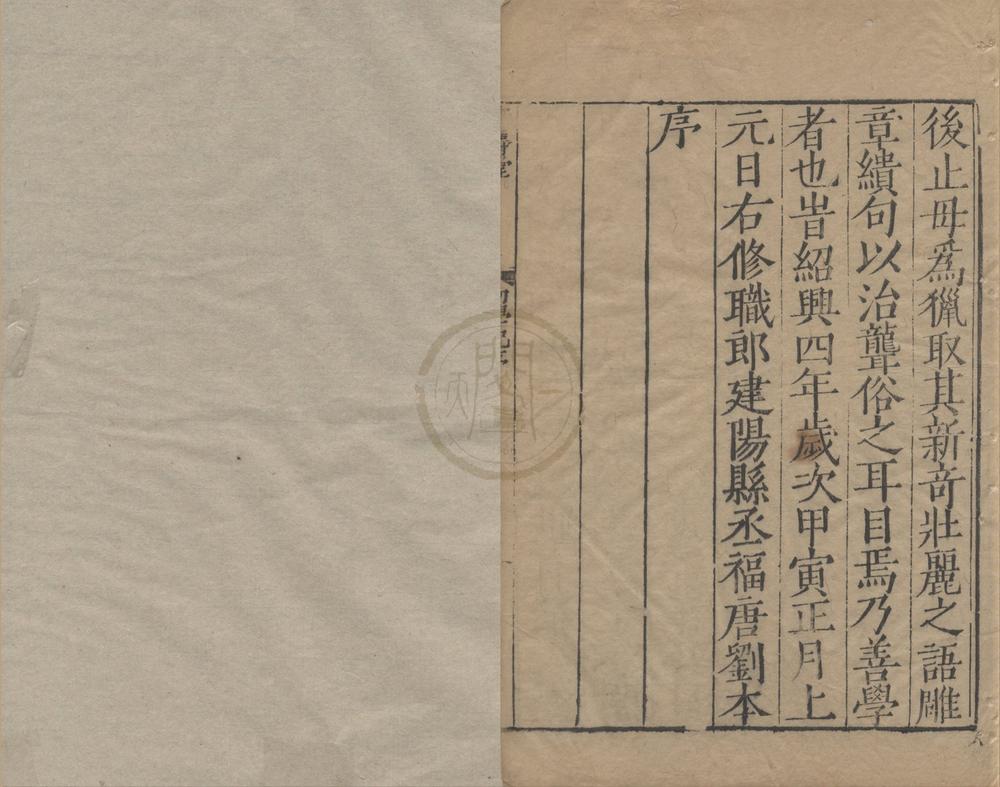 後止毋爲獵取其新竒壯麗之語雕
章繢句以治聾俗之耳目焉乃善學
者也旹紹興四年歲次甲寅正月上
元日右修職郎建陽縣丞福唐劉本
序